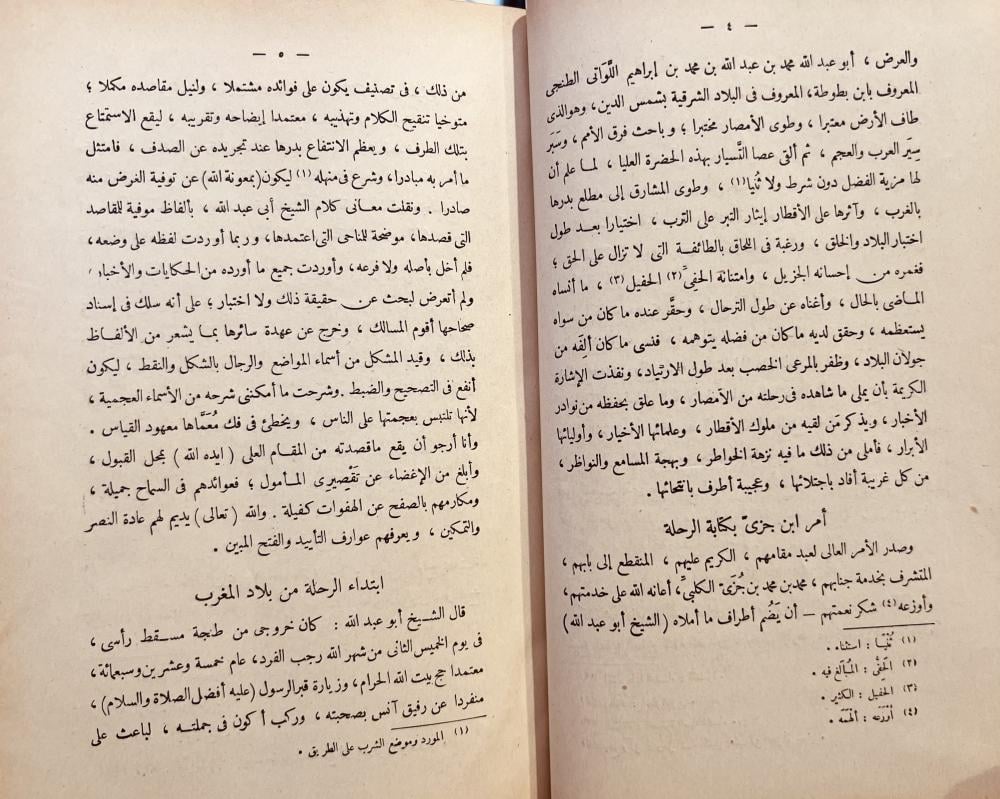 — ٤ —
والعرض ، أبو عبد الله محمد بن عبد الله بن محمد بن إبراهيم اللَّوَاتى الطنجى
المعروف بابن بطوطة، المعروف فى البلاد الشرقية بشمس الدين، وهو الذى
طاف الأرض معتبرا ، وطوى الأمصار مختبرا ؛ وباحث فرق الأمم ، وسَبَر
سِيَر العرب والعجم ، ثم ألقى عصا التَّسيار بهذه الحضرة العليا ، لما علم أن
لها مزية الفضل دون شرط ولا ثُنيا(١) ، وطوى المشارق إلى مطلع بدرها
بالغرب ، وآثرها على الأقطار إيثار التبر على الترب ، اختيارا بعد طول
اختبار البلاد والخلق ، ورغبة فى اللحاق بالطائفة التى لا تزال على الحق ؛
فغمره من إحسانه الجزيل ، وامتنانة الحفىِّ(٢) الحفيل (٣) ، ما أنساه
الماضى بالحال ، وأغناه عن طول الترحال ، وحقَّر عنده ما كان من سواه
يستعظمه ، وحقق لديه ما كان من فضله يتوهمه ، فنسى ما كان ألِفَه من
جولان البلاد ، وظفر بالمرعى الخصب بعد طول الارتياد، ونفذت الإشارة
الكريمة بأن يملى ما شاهده فى رحلته من الأمصار ، وما علق بحفظه من نوادر
الأخبار ، ويذكر مَن لقيه من ملوك الأقطار ، وعلمائها الأخيار ، وأوليائها
الأبرار ، فأملى من ذلك ما فيه نزهة الخواطر ، وبهجة المسامع والنواظر ،
من كل غريبة أفاد باجتلائها ، وعجيبة أطرف بانتحائها .
أمر ابن جزىّ بكتابة الرحلة
وصدر الأمر العالى لعبد مقامهم ، الكريم عليهم ، المنقطع إلى بابهم ،
المتشرف بخدمة جنابهم ، محمد بن محمد بن جُزَىّ الكلبىّ، أعانه الله على خدمتهم،
وأوزعه(٤) شكر نعمتهم — أن يَضُم أطراف ما أملاه (الشيخ أبو عبد الله)
(١) ثُنْيَا : استثناء .
(٢) الحَفِىُّ : المُبَالَغ فيه .
(٣) الحفيل : الكثير .
(٤) أَوْزَعه : أَلهَمَه .
— ٥ —
من ذلك ، فى تصنيف يكون على فوائده مشتملا ، ولنيل مقاصده مكملا ؛
متوخيا تنقيح الكلام وتهذيبه ، معتمدا إيضاحه وتقريبه ، ليقع الاستمتاع
بتلك الطرف ، ويعظم الانتفاع بدرها عند تجريده عن الصدف . فامتثل
ما أمر به مبادرا، وشرع فى منهله (١) ليكون(بمعونة الله) عن توفية الغرض منه
صادرا . ونقلت معانى كلام الشيخ أبى عبد الله ، بألفاظ موفية للقاصد
التى قصدها، موضحة للناحى التى اعتمدها، وربما أوردت لفظه على وضعه،
فلم أخل بأصله ولا فرعه، وأوردت جميع ما أورده من الحكايات والأخبار ،
ولم أتعرض لبحث عن حقيقة ذلك ولا اختبار ، على أنه سلك فى إسناد
صحاحها أقوم المسالك ، وخرج عن عهدة سائرها بما يشعر من الألفاظ
بذلك ، وقيد المشكل من أسماء المواضع والرجال بالشكل والنقط ، ليكون
أنفع فى التصحيح والضبط . وشرحت ما أمكننى شرحه من الأسماء العجمية ،
لأنها تلتبس بعجمتها على الناس ، ويخطئ فى فك مُعَمَّاها معهود القياس .
وأنا أرجو أن يقع ماقصدته من المقام العلى ( أيده الله ) بمحل القبول ،
وأبلغ من الإغضاء عن تَقْصِيرى المأمول ؛ فعوائدهم فى السماح جميلة ،
ومكارمهم بالصفح عن الهفوات كفيلة . والله ( تعالى ) يديم لهم عادة النصر
والتمكين ، ويعرفهم عوارف التأييد والفتح المبين .
ابتداء الرحلة من بلاد المغرب
قال الشيخ أبو عبد الله : كان خروجى من طنجة مسقط رأسى ،
فى يوم الخميس الثانى من شهر الله رجب الفرد، عام خمسة وعشرين وسبعمائة،
معتمدا حج بيت الله الحرام، وزيارة قبر الرسول (عليه أفضل الصلاة والسلام) ،
منفردا عن رفيق آنس بصحبته ، وركب أكون فى جملته ، لباعث على
(١) المورد وموضع الشرب على الطريق .